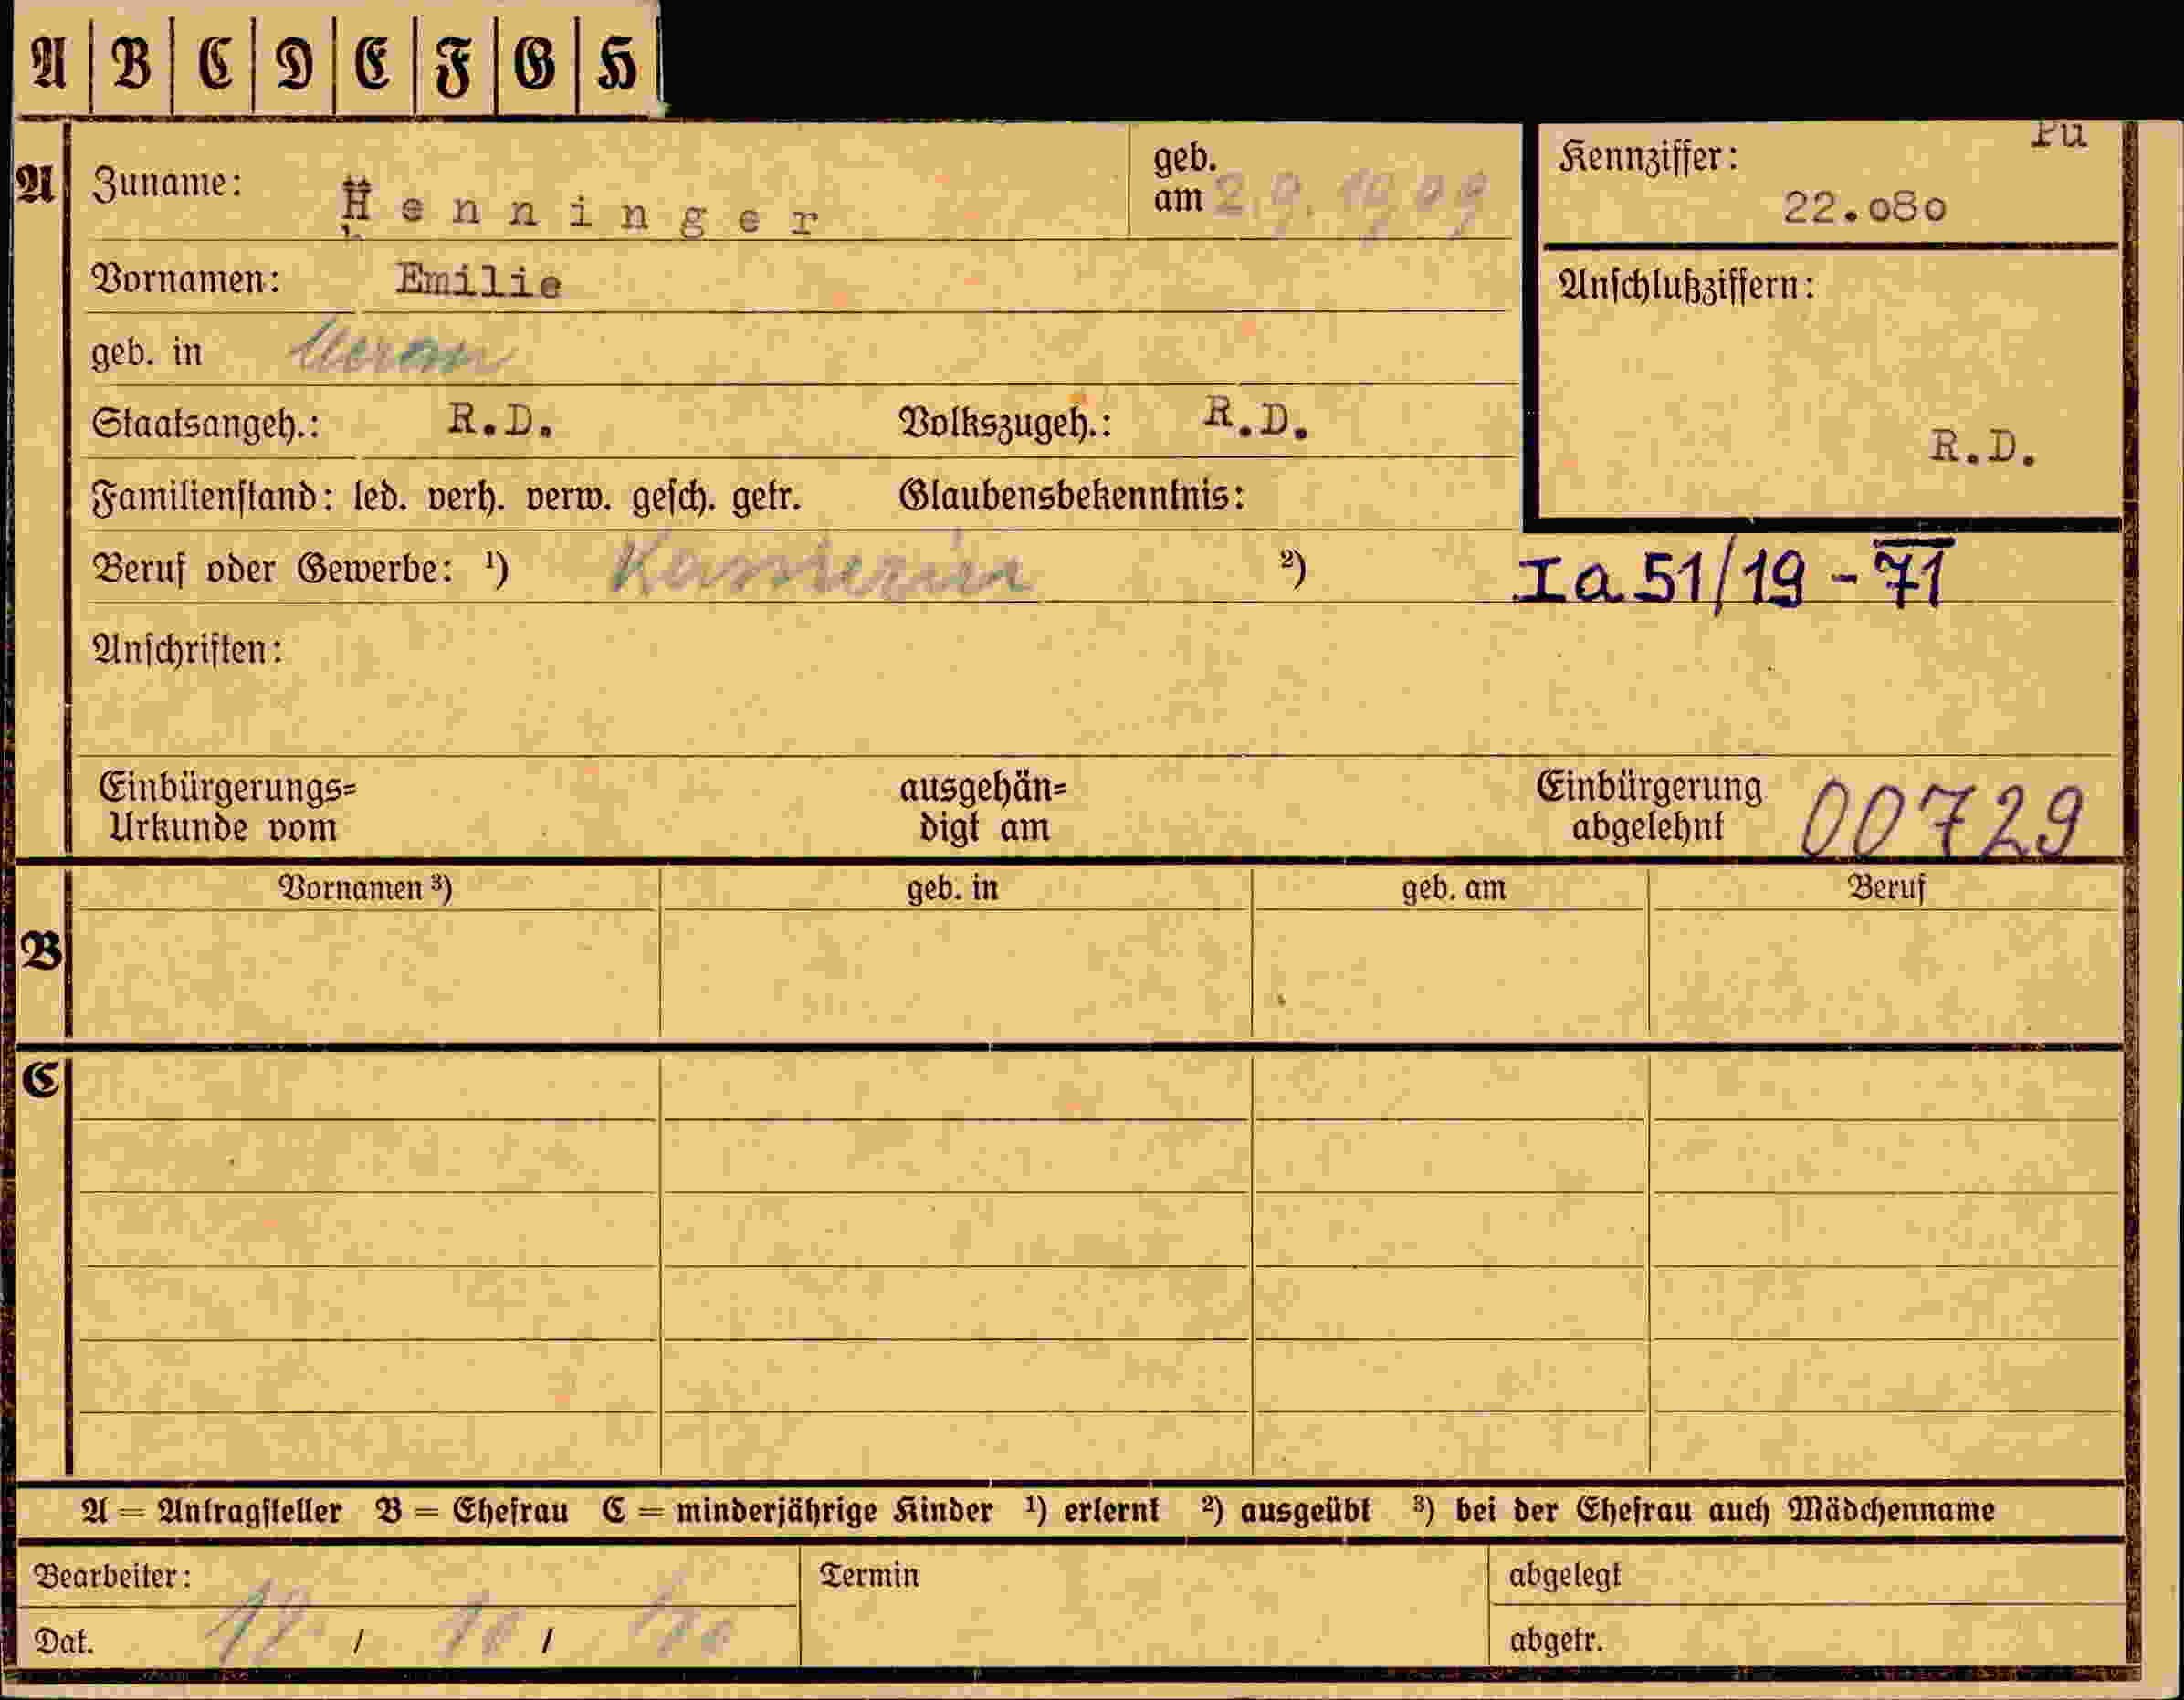 A B C D E F G H
Pu
A Zuname: Henninger geb. am 2.9.1909 Kennziffer: 22.080
Vornamen: Emilie Anschlußziffern:
geb. in Meran
Staatsangeh.: R.D. Volkszugeh.: R.D. R.D.
Familienstand: led. verh. verw. gesch. getr. Glaubensbekenntnis:
Beruf oder Gewerbe: ¹) ²) Ia51/19-71
Anschriften:
Einbürgerungs= ausgehän= Einbürgerung
Urkunde vom digt am abgelehnt 00729
Vornamen ³) geb. in geb. am Beruf
B
C
A = Antragsteller B = Ehefrau C = minderjährige Kinder ¹) erlernt ²) ausgeübt ³) bei der Ehefrau auch Mädchenname
Bearbeiter: Termin abgelegt
Dat. / / abgetr.